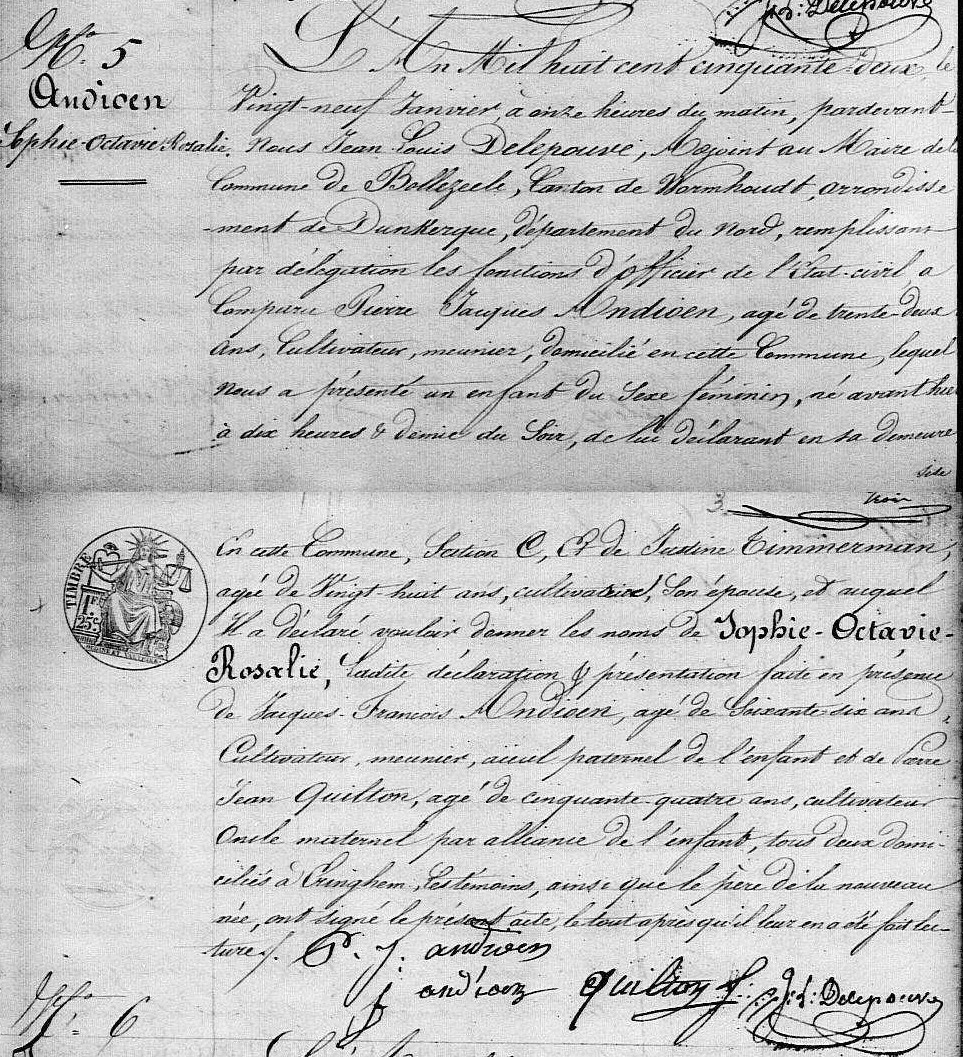 J. L. Delepouve
N.° 5
Andioen
Sophie-Octavie-Rosalie.
L'An Mil huit cent cinquante-deux, le
Vingt-neuf Janvier, à onze heures du matin, pardevant
Nous Jean Louis Delepouve, Adjoint au Maire de la
Commune de Bollezeele, Canton de Wormhoudt, arrondisse
-ment de Dunkerque, département du Nord, remplissant
par délégation les fonctions d'officier de l'Etat-civil, a
Comparu Pierre Jacques Andioen, agé de trente-deux
ans, Cultivateur, meunier, domicilié en cette Commune, lequel
Nous a présenté un enfant du Sexe féminin, né avant hier
à dix heures & demie du Soir, de lui déclarant en sa demeure
sise
3. trois
TIMBRE
1 F.
25 C.
En cette Commune, Section C, Et de Justine Timmerman,
agée de Vingt-huit ans, cultivatrice, Son épouse, et auquel
Il a déclaré vouloir donner les noms de Sophie-Octavie-
Rosalie, Ladite déclaration & présentation faite en présence
de Jacques-François Andioen, agé de Soixante-six ans,
Cultivateur, meunier, aïeul paternel de l'enfant et de Pierre
Jean Quilton, agé de cinquante-quatre ans, cultivateur
Oncle maternel par alliance de l'enfant, tous deux domi-
ciliés à Eringhem, Les témoins, ainsi que le père de la nouveau
née, ont signé le présent acte, le tout après qu'il leur en a été fait lec-
ture. P. J. andioen
J. f andioen Quilton J. L. Delepouve
N.° 6